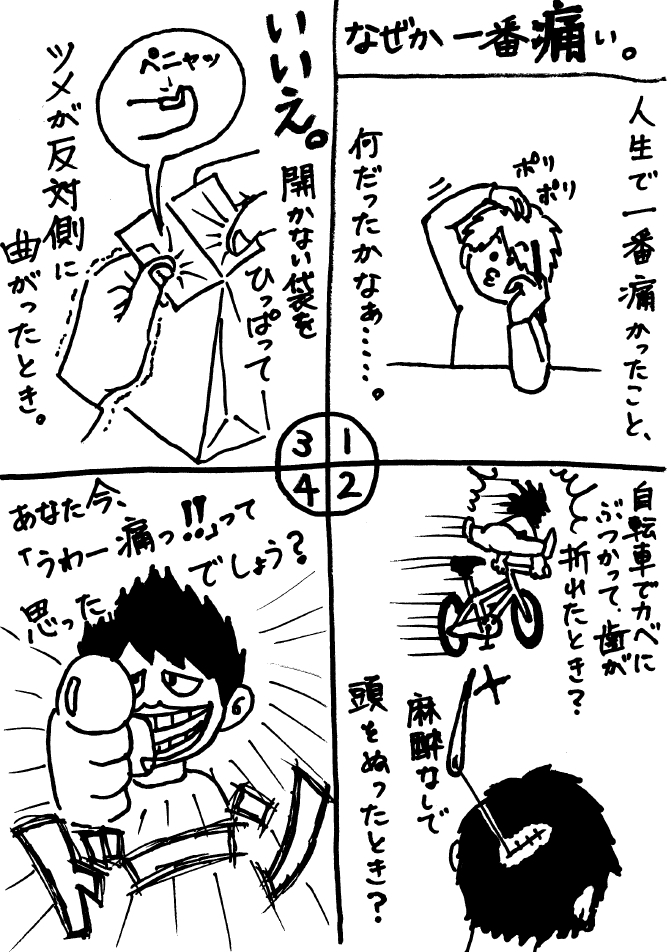 なぜか一番痛い。
人生で一番痛かったこと、
何だったかなぁ……。
ポリ
ポリ
1
自転車でカベに
ぶつかって、歯が
折れたとき?
麻酔なしで
頭をぬったとき?
2
いいえ。
開かない袋を
ひっぱって
ツメが反対側に
曲がったとき。
ペニャッ
3
あなた今、
「うわー痛っ!!」って
思った
でしょう?
ドーン
4